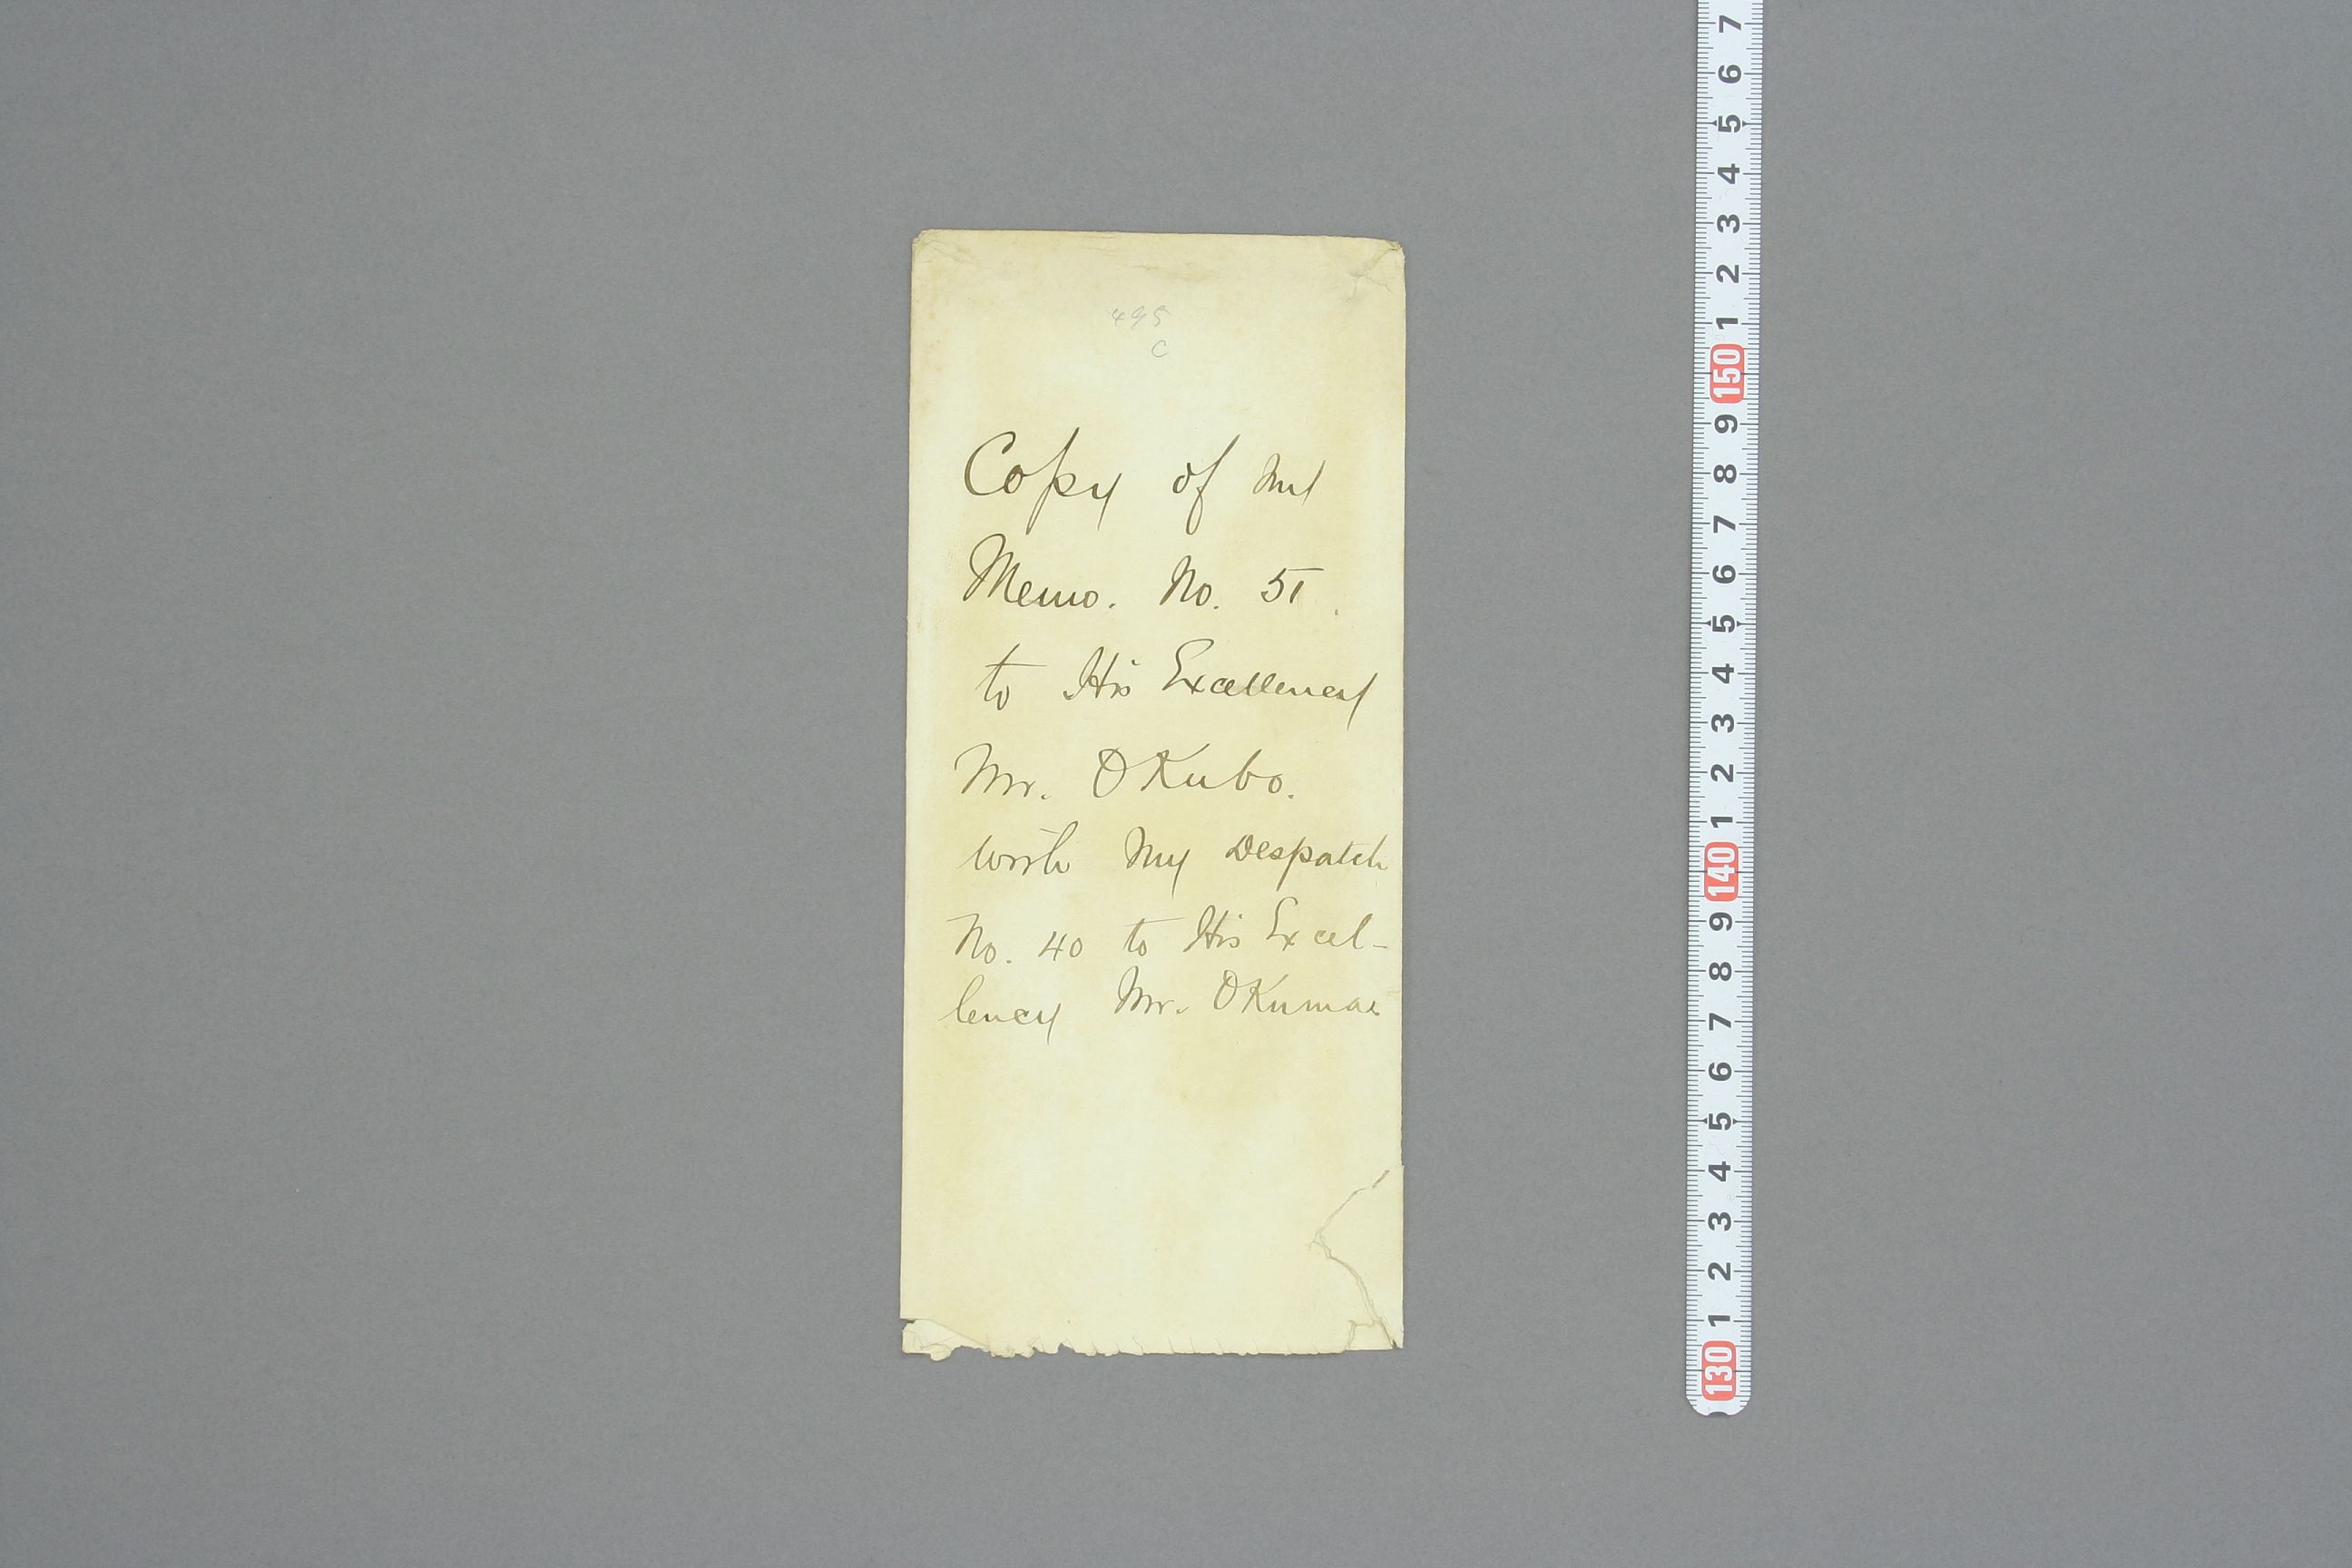 495
C
Copy of my
Memo. No. 51.
to His Excellency
Mr. OKubo.
with my Despatch
No. 40 to His Excel-
lency Mr. OKuma
7
6
5
4
3
2
1
150
9
8
7
6
5
4
3
2
1
140
9
8
7
6
5
4
3
2
1
130